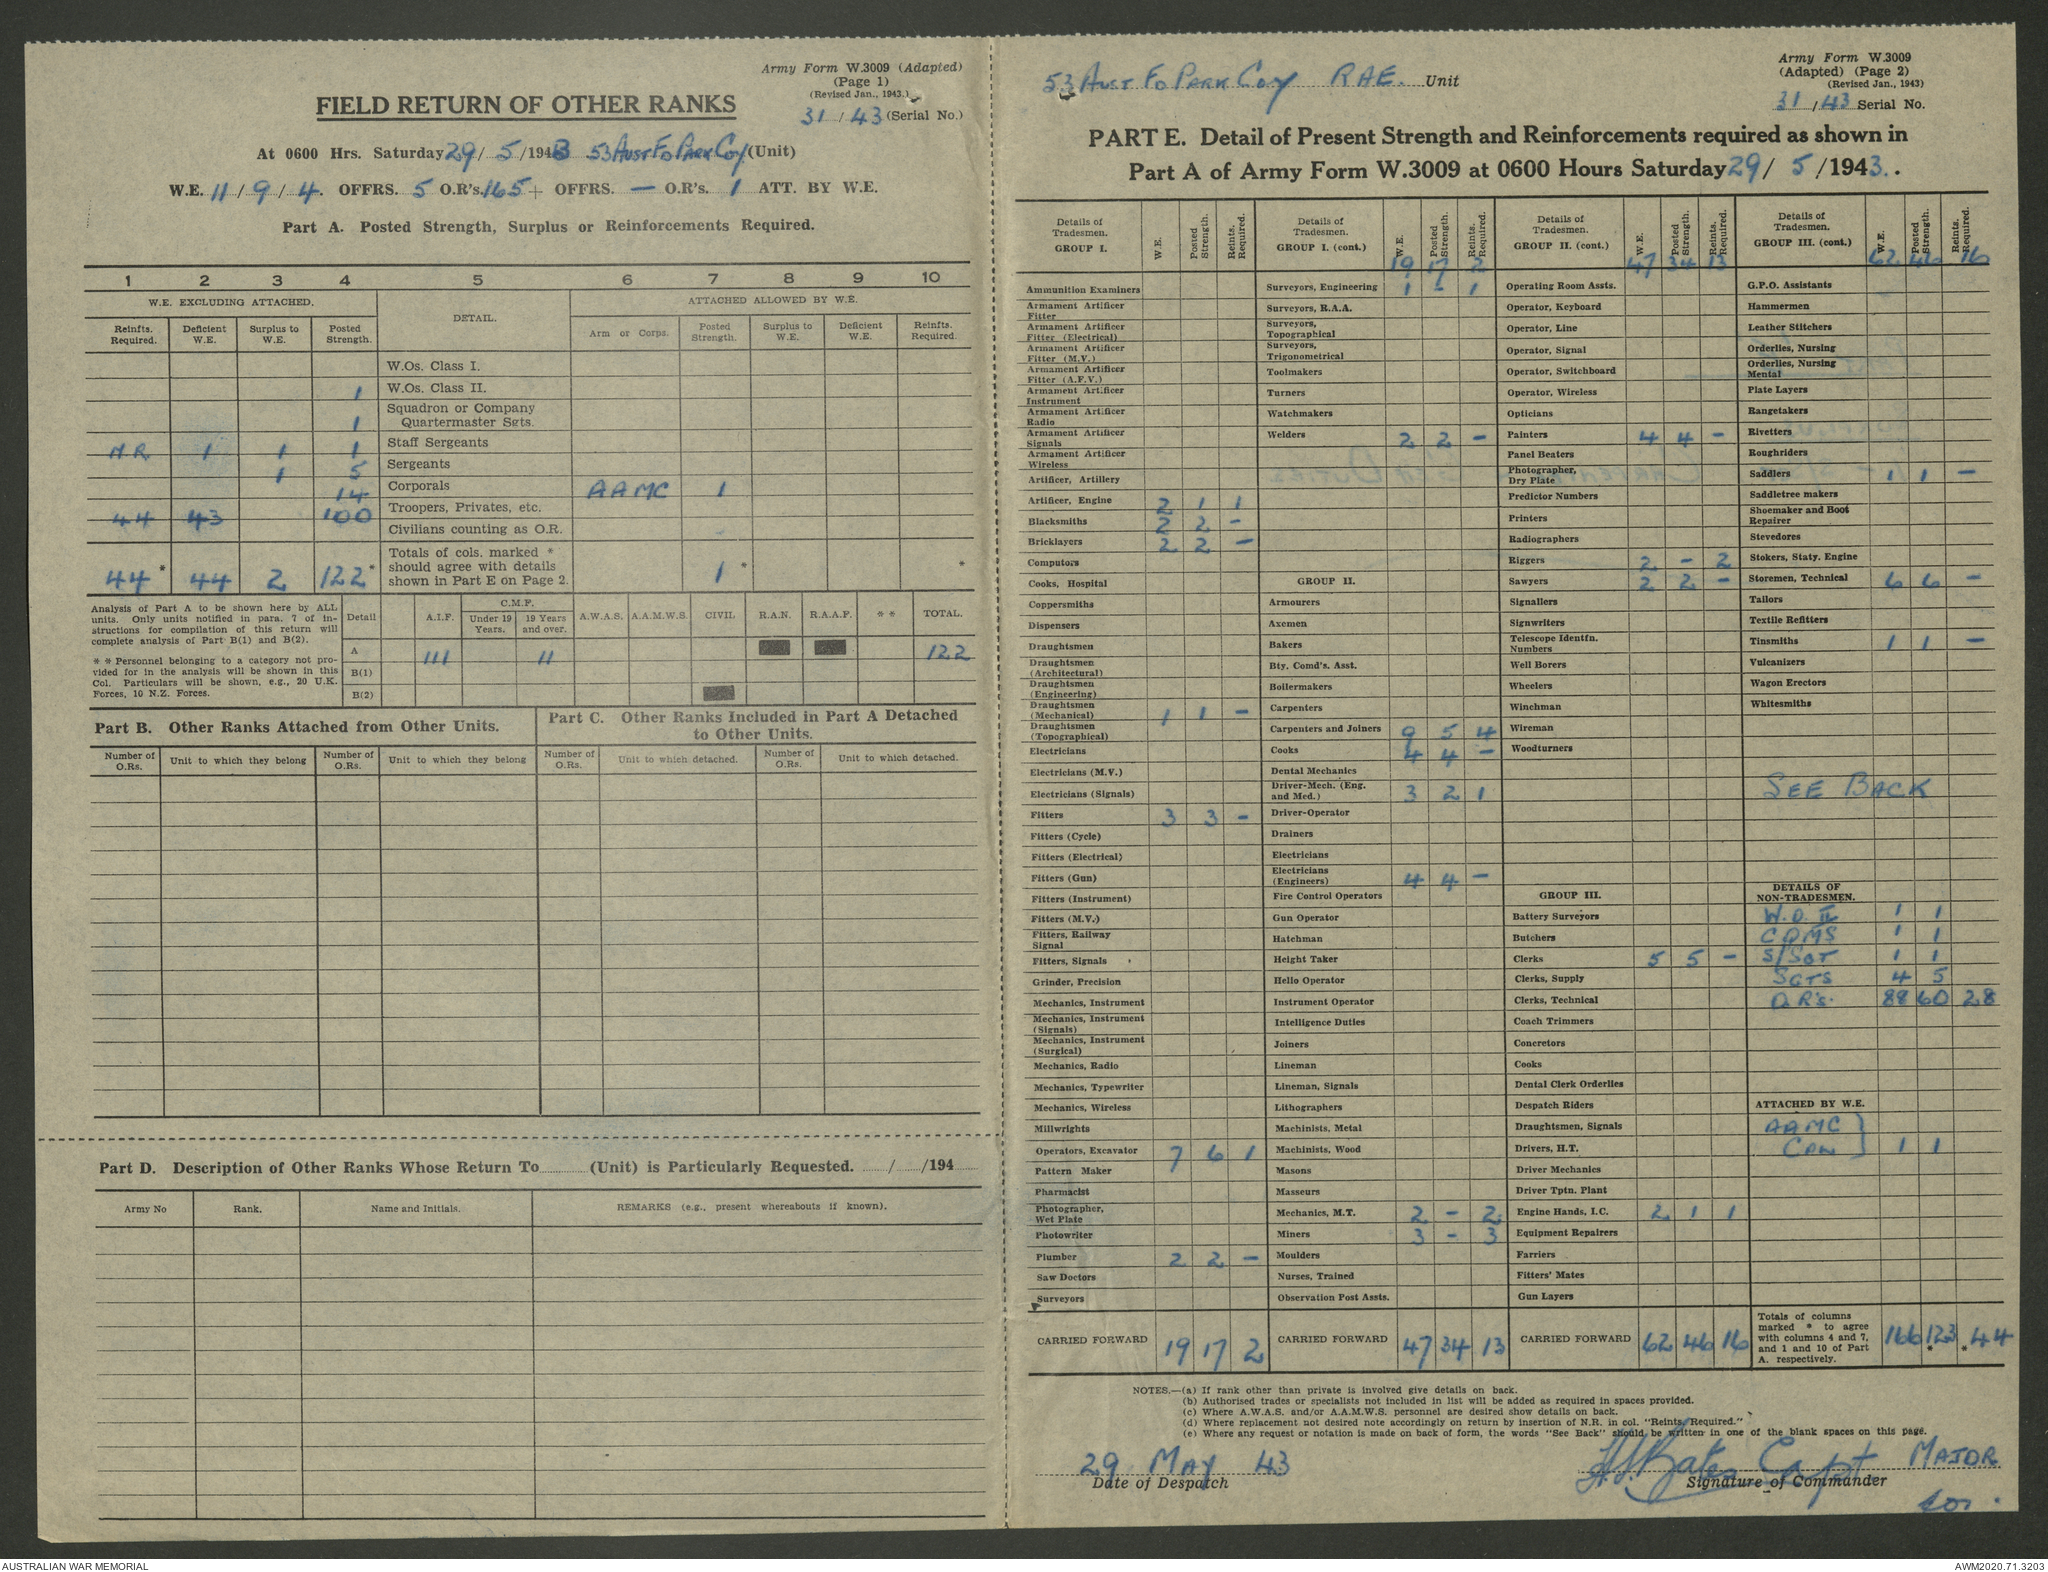 Army Form W.3009 (Adapted)
(Page 1)
(Revised Jan., 1943.)
31 / 43 (Serial No.)
FIELD RETURN OF OTHER RANKS
At 0600 Hrs. Saturday 29/ 5 /1943 53 Aust Fd Park Coy (Unit)
W.E. 11 / 9 / 4. OFFRS. 5 O.R's. 165 + OFFRS. — O.R's. 1 ATT. BY W.E.
Part A. Posted Strength, Surplus or Reinforcements Required.
1 2 3 4 5 6 7 8 9 10
W.E. EXCLUDING ATTACHED. DETAIL. ATTACHED ALLOWED BY W.E.
Reinfts. Required. Deficient W.E. Surplus to W.E. Posted Strength. Arm or Corps. Posted Strength. Surplus to W.E. Deficient W.E. Reinfts. Required.
W.Os. Class I.
1 W.Os. Class II.
1 Squadron or Company Quartermaster Sgts.
NR 1 1 1 Staff Sergeants
1 5 Sergeants
14 Corporals AAMC 1
44 43 100 Troopers, Privates, etc.
Civilians counting as O.R.
44 * 44 2 122 * Totals of cols. marked * should agree with details shown in Part E on Page 2. 1 * *
Analysis of Part A to be shown here by ALL
units. Only units notified in para. 7 of in-
structions for compilation of this return will
complete analysis of Part B(1) and B(2).
* * Personnel belonging to a category not pro-
vided for in the analysis will be shown in this
Col. Particulars will be shown, e.g., 20 U.K.
Forces, 10 N.Z. Forces.
Detail A.I.F. C.M.F. Under 19 Years. 19 Years and over. A.W.A.S. A.A.M.W.S. CIVIL R.A.N. R.A.A.F. * * TOTAL.
A 111 11 122
B(1)
B(2)
Part B. Other Ranks Attached from Other Units.
Part C. Other Ranks Included in Part A Detached to Other Units.
Number of O.Rs. Unit to which they belong Number of O.Rs. Unit to which they belong Number of O.Rs. Unit to which detached. Number of O.Rs. Unit to which detached.
Part D. Description of Other Ranks Whose Return To (Unit) is Particularly Requested. / /194
Army No Rank. Name and Initials. REMARKS (e.g., present whereabouts if known).
53 Aust Fd Park Coy RAE. Unit
Army Form W.3009
(Adapted) (Page 2)
(Revised Jan., 1943)
31 / 43 Serial No.
PART E. Detail of Present Strength and Reinforcements required as shown in
Part A of Army Form W.3009 at 0600 Hours Saturday 29/ 5 /1943.
Details of Tradesmen. GROUP I. W.E. Posted Strength. Reints. Required.
Ammunition Examiners
Armament Artificer Fitter
Armament Artificer Fitter (Electrical)
Armament Artificer Fitter (M.V.)
Armament Artificer Fitter (A.F.V.)
Armament Artificer Instrument
Armament Artificer Radio
Armament Artificer Signals
Armament Artificer Wireless
Artificer, Artillery
Artificer, Engine 2 1 1
Blacksmiths 2 2 -
Bricklayers 2 2 -
Computors
Cooks, Hospital
Coppersmiths
Dispensers
Draughtsmen
Draughtsmen (Architectural)
Draughtsmen (Engineering)
Draughtsmen (Mechanical) 1 1 -
Draughtsmen (Topographical)
Electricians
Electricians (M.V.)
Electricians (Signals)
Fitters 3 3 -
Fitters (Cycle)
Fitters (Electrical)
Fitters (Gun)
Fitters (Instrument)
Fitters (M.V.)
Fitters, Railway Signal
Fitters, Signals
Grinder, Precision
Mechanics, Instrument
Mechanics, Instrument (Signals)
Mechanics, Instrument (Surgical)
Mechanics, Radio
Mechanics, Typewriter
Mechanics, Wireless
Millwrights
Operators, Excavator 7 6 1
Pattern Maker
Pharmacist
Photographer, Wet Plate
Photowriter
Plumber 2 2 -
Saw Doctors
Surveyors
CARRIED FORWARD 19 17 2
Details of Tradesmen. GROUP I. (cont.) W.E. Posted Strength. Reints. Required.
19 17 2
Surveyors, Engineering 1 - 1
Surveyors, R.A.A.
Surveyors, Topographical
Surveyors, Trigonometrical
Toolmakers
Turners
Watchmakers
Welders 2 2 -
GROUP II.
Armourers
Axemen
Bakers
Bty. Comd's. Asst.
Boilermakers
Carpenters
Carpenters and Joiners 9 5 4
Cooks 4 4 -
Dental Mechanics
Driver-Mech. (Eng. and Med.) 3 2 1
Driver-Operator
Drainers
Electricians
Electricians (Engineers) 4 4 -
Fire Control Operators
Gun Operator
Hatchman
Height Taker
Hello Operator
Instrument Operator
Intelligence Duties
Joiners
Lineman
Lineman, Signals
Lithographers
Machinists, Metal
Machinists, Wood
Masons
Masseurs
Mechanics, M.T. 2 - 2
Miners 3 - 3
Moulders
Nurses, Trained
Observation Post Assts.
CARRIED FORWARD 47 34 13
Details of Tradesmen. GROUP II. (cont.) W.E. Posted Strength. Reints. Required.
47 34 13
Operating Room Assts.
Operator, Keyboard
Operator, Line
Operator, Signal
Operator, Switchboard
Operator, Wireless
Opticians
Painters 4 4 -
Panel Beaters
Photographer, Dry Plate
Predictor Numbers
Printers
Radiographers
Riggers 2 - 2
Sawyers 2 2 -
Signallers
Signwriters
Telescope Identfn. Numbers
Well Borers
Wheelers
Winchman
Wireman
Woodturners
GROUP III.
Battery Surveyors
Butchers
Clerks 5 5 -
Clerks, Supply
Clerks, Technical
Coach Trimmers
Concretors
Cooks
Dental Clerk Orderlies
Despatch Riders
Draughtsmen, Signals
Drivers, H.T.
Driver Mechanics
Driver Tptn. Plant
Engine Hands, I.C. 2 1 1
Equipment Repairers
Farriers
Fitters' Mates
Gun Layers
CARRIED FORWARD 62 46 16
Details of Tradesmen. GROUP III. (cont.) W.E. Posted Strength. Reints. Required.
62 46 16
G.P.O. Assistants
Hammermen
Leather Stitchers
Orderlies, Nursing
Orderlies, Nursing Mental
Plate Layers
Rangetakers
Rivetters
Roughriders
Saddlers 1 1 -
Saddletree makers
Shoemaker and Boot Repairer
Stevedores
Stokers, Staty. Engine
Storemen, Technical 6 6 -
Tailors
Textile Refitters
Tinsmiths 1 1 -
Vulcanizers
Wagon Erectors
Whitesmiths
SEE BACK
DETAILS OF NON-TRADESMEN.
W.O. II 1 1
CQMS 1 1
S/SGT 1 1
SGTS 4 5
O.R's. 88 60 28
ATTACHED BY W.E.
AAMC
CPL } 1 1
Totals of columns marked * to agree with columns 4 and 7, and 1 and 10 of Part A. respectively. 166 123 * * 44
NOTES.—(a) If rank other than private is involved give details on back.
(b) Authorised trades or specialists not included in list will be added as required in spaces provided.
(c) Where A.W.A.S. and/or A.A.M.W.S. personnel are desired show details on back.
(d) Where replacement not desired note accordingly on return by insertion of N.R. in col. "Reints. Required."
(e) Where any request or notation is made on back of form, the words "See Back" should be written in one of the blank spaces on this page.
29 MAY 43
Date of Despatch
Bates Capt MAJOR
Signature of Commander
for.
AUSTRALIAN WAR MEMORIAL
AWM2020.71.3203